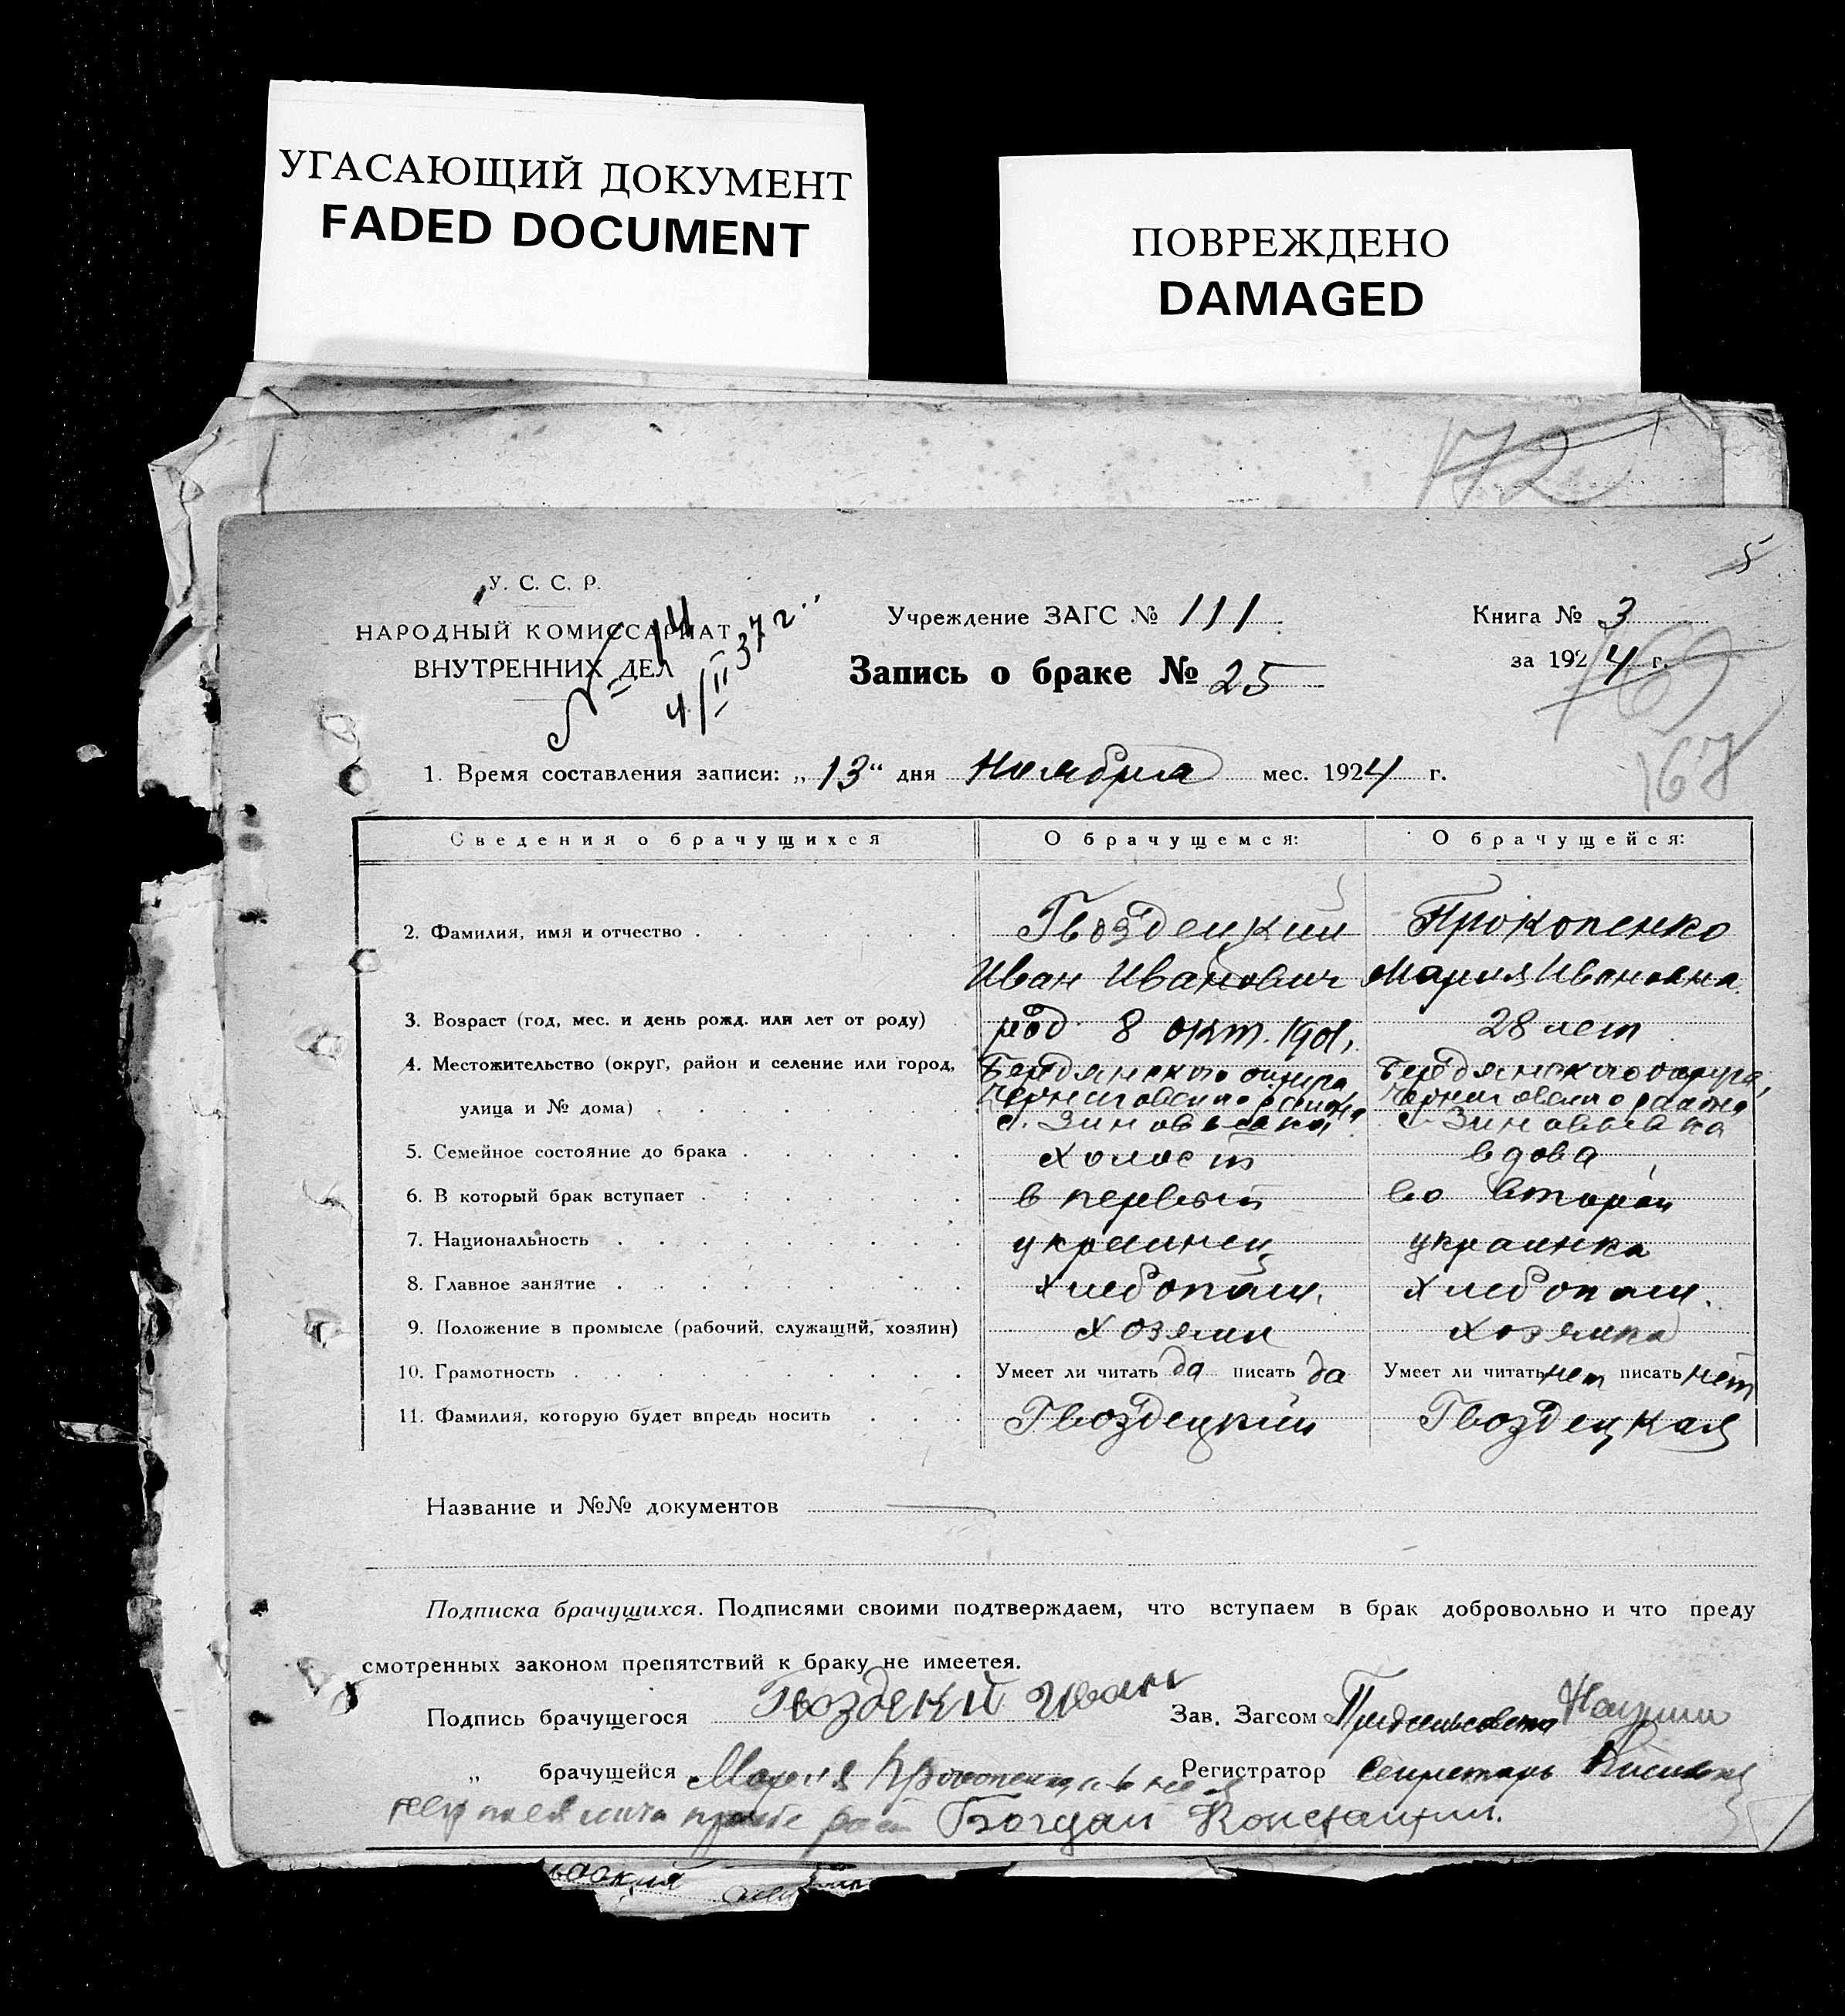 УГАСАЮЩИЙ ДОКУМЕНТ
FADED DOCUMENT
ПОВРЕЖДЕНО
DAMAGED
172
5
У. С. С. Р.
НАРОДНЫЙ КОМИССАРИАТ
ВНУТРЕННИХ ДЕЛ
№ 14
4/II 37 г.
Учреждение ЗАГС № 111
Запись о браке № 25
Книга № 3
за 1924 г.
169
167
1. Время составления записи: „13“ дня Ноября мес. 1924 г.
Сведения о брачущихся О брачущемся: О брачущейся:
2. Фамилия, имя и отчество Гвоздецкий Прокопенко
Иван Иванович Мария Ивановна
3. Возраст (год, мес. и день рожд. или лет от роду) род 8 окт. 1901, 28 лет
4. Местожительство (округ, район и селение или город, Бердянского округа Бердянского округа,
улица и № дома) Черниговского района Черниговского района
с. Зиновьевка с. Зиновьевка
5. Семейное состояние до брака холост вдова
6. В который брак вступает в первый во второй
7. Национальность украинец украинка
8. Главное занятие хлебопаш. хлебопаш.
9. Положение в промысле (рабочий, служащий, хозяин) хозяин хозяйка
10. Грамотность Умеет ли читать да писать да Умеет ли читать нет писать нет
11. Фамилия, которую будет впредь носить Гвоздецкий Гвоздецкая
Название и №№ документов
Подписка брачущихся. Подписями своими подтверждаем, что вступаем в брак добровольно и что преду
смотренных законом препятствий к браку не имеетея.
Подпись брачущегося Гвоздекий Иван Зав. Загсом Предсельсовета
„ брачущейся Мария Регистратор Секретарь
Богдан Константин.